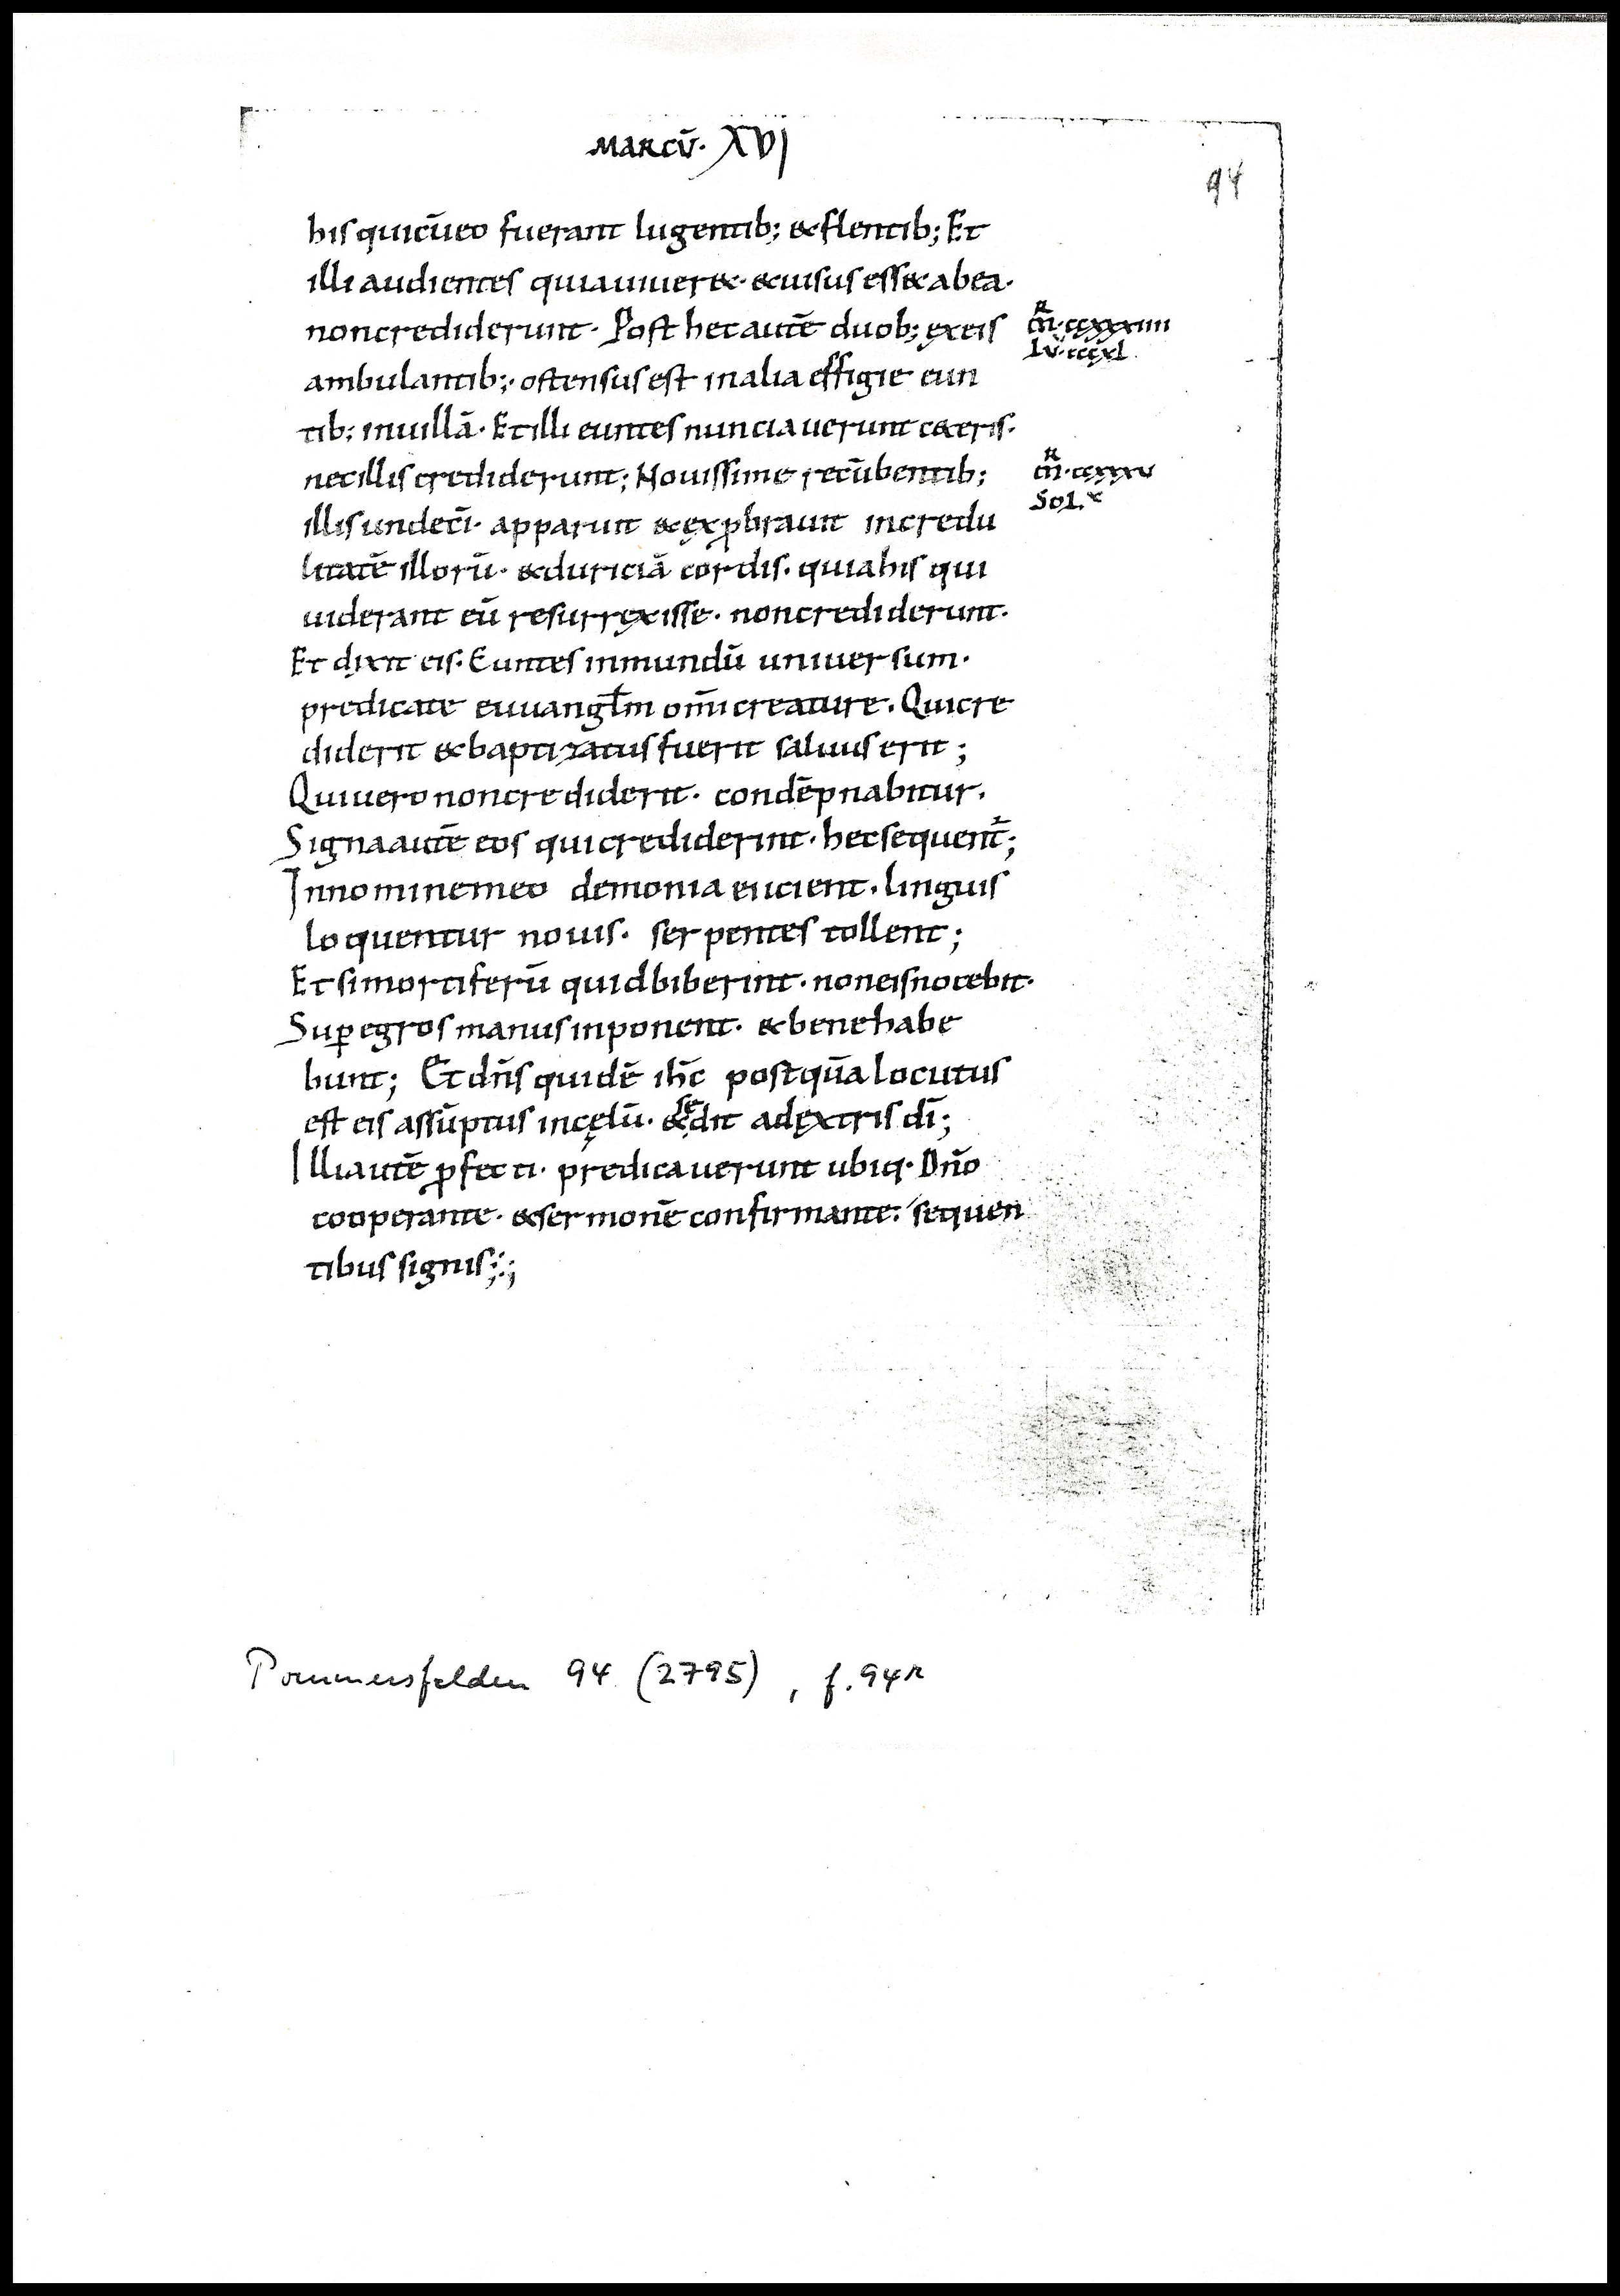 MARCŪ· XVI
94
his qui cū eo fuerant lugentib; & flentib; Et
illi audientes quia uiueret· & uisus esset ab ea·
non crediderunt· Post hec autē duob; ex eis
m̄·ccxxxiiii
lū·cccxl
ambulantib;· ostensus est in alia effigie eun
tib; in uillā· Et illi euntes nunciauerunt ceteris·
nec illis crediderunt; Nouissime recūbentib;
m̄·ccxxxv
Sol· x
illis undeci̅· apparuit & exꝓbrauit incredu
litatē illorū· & duriciā cordis· quia his qui
uiderant eū resurrexisse· non crediderunt·
Et dixit eis· Euntes in mundū uniuersum·
predicate euuangl̄m om̄i creature· Qui cre
diderit & baptizatus fuerit saluus erit;
Qui uero non crediderit· condēpnabitur·
Signa autē eos qui crediderint· hec sequent̄;
In nomine meo demonia eiicient· linguis
loquentur nouis· serpentes tollent;
Et si mortiferū quid biberint· non eis nocebit·
Suꝑ egros manus inponent· & bene habe
bunt; Et dn̄s quidē ih̄c postquā locutus
est eis assūptus in cęlū· & sedit a dextris dī;
Illi autē ꝓfecti· predicauerunt ubiq· Dn̄o
cooperante· & sermonē confirmante· sequen
tibus signis;·;
Pommersfelden 94 (2795), f. 94r